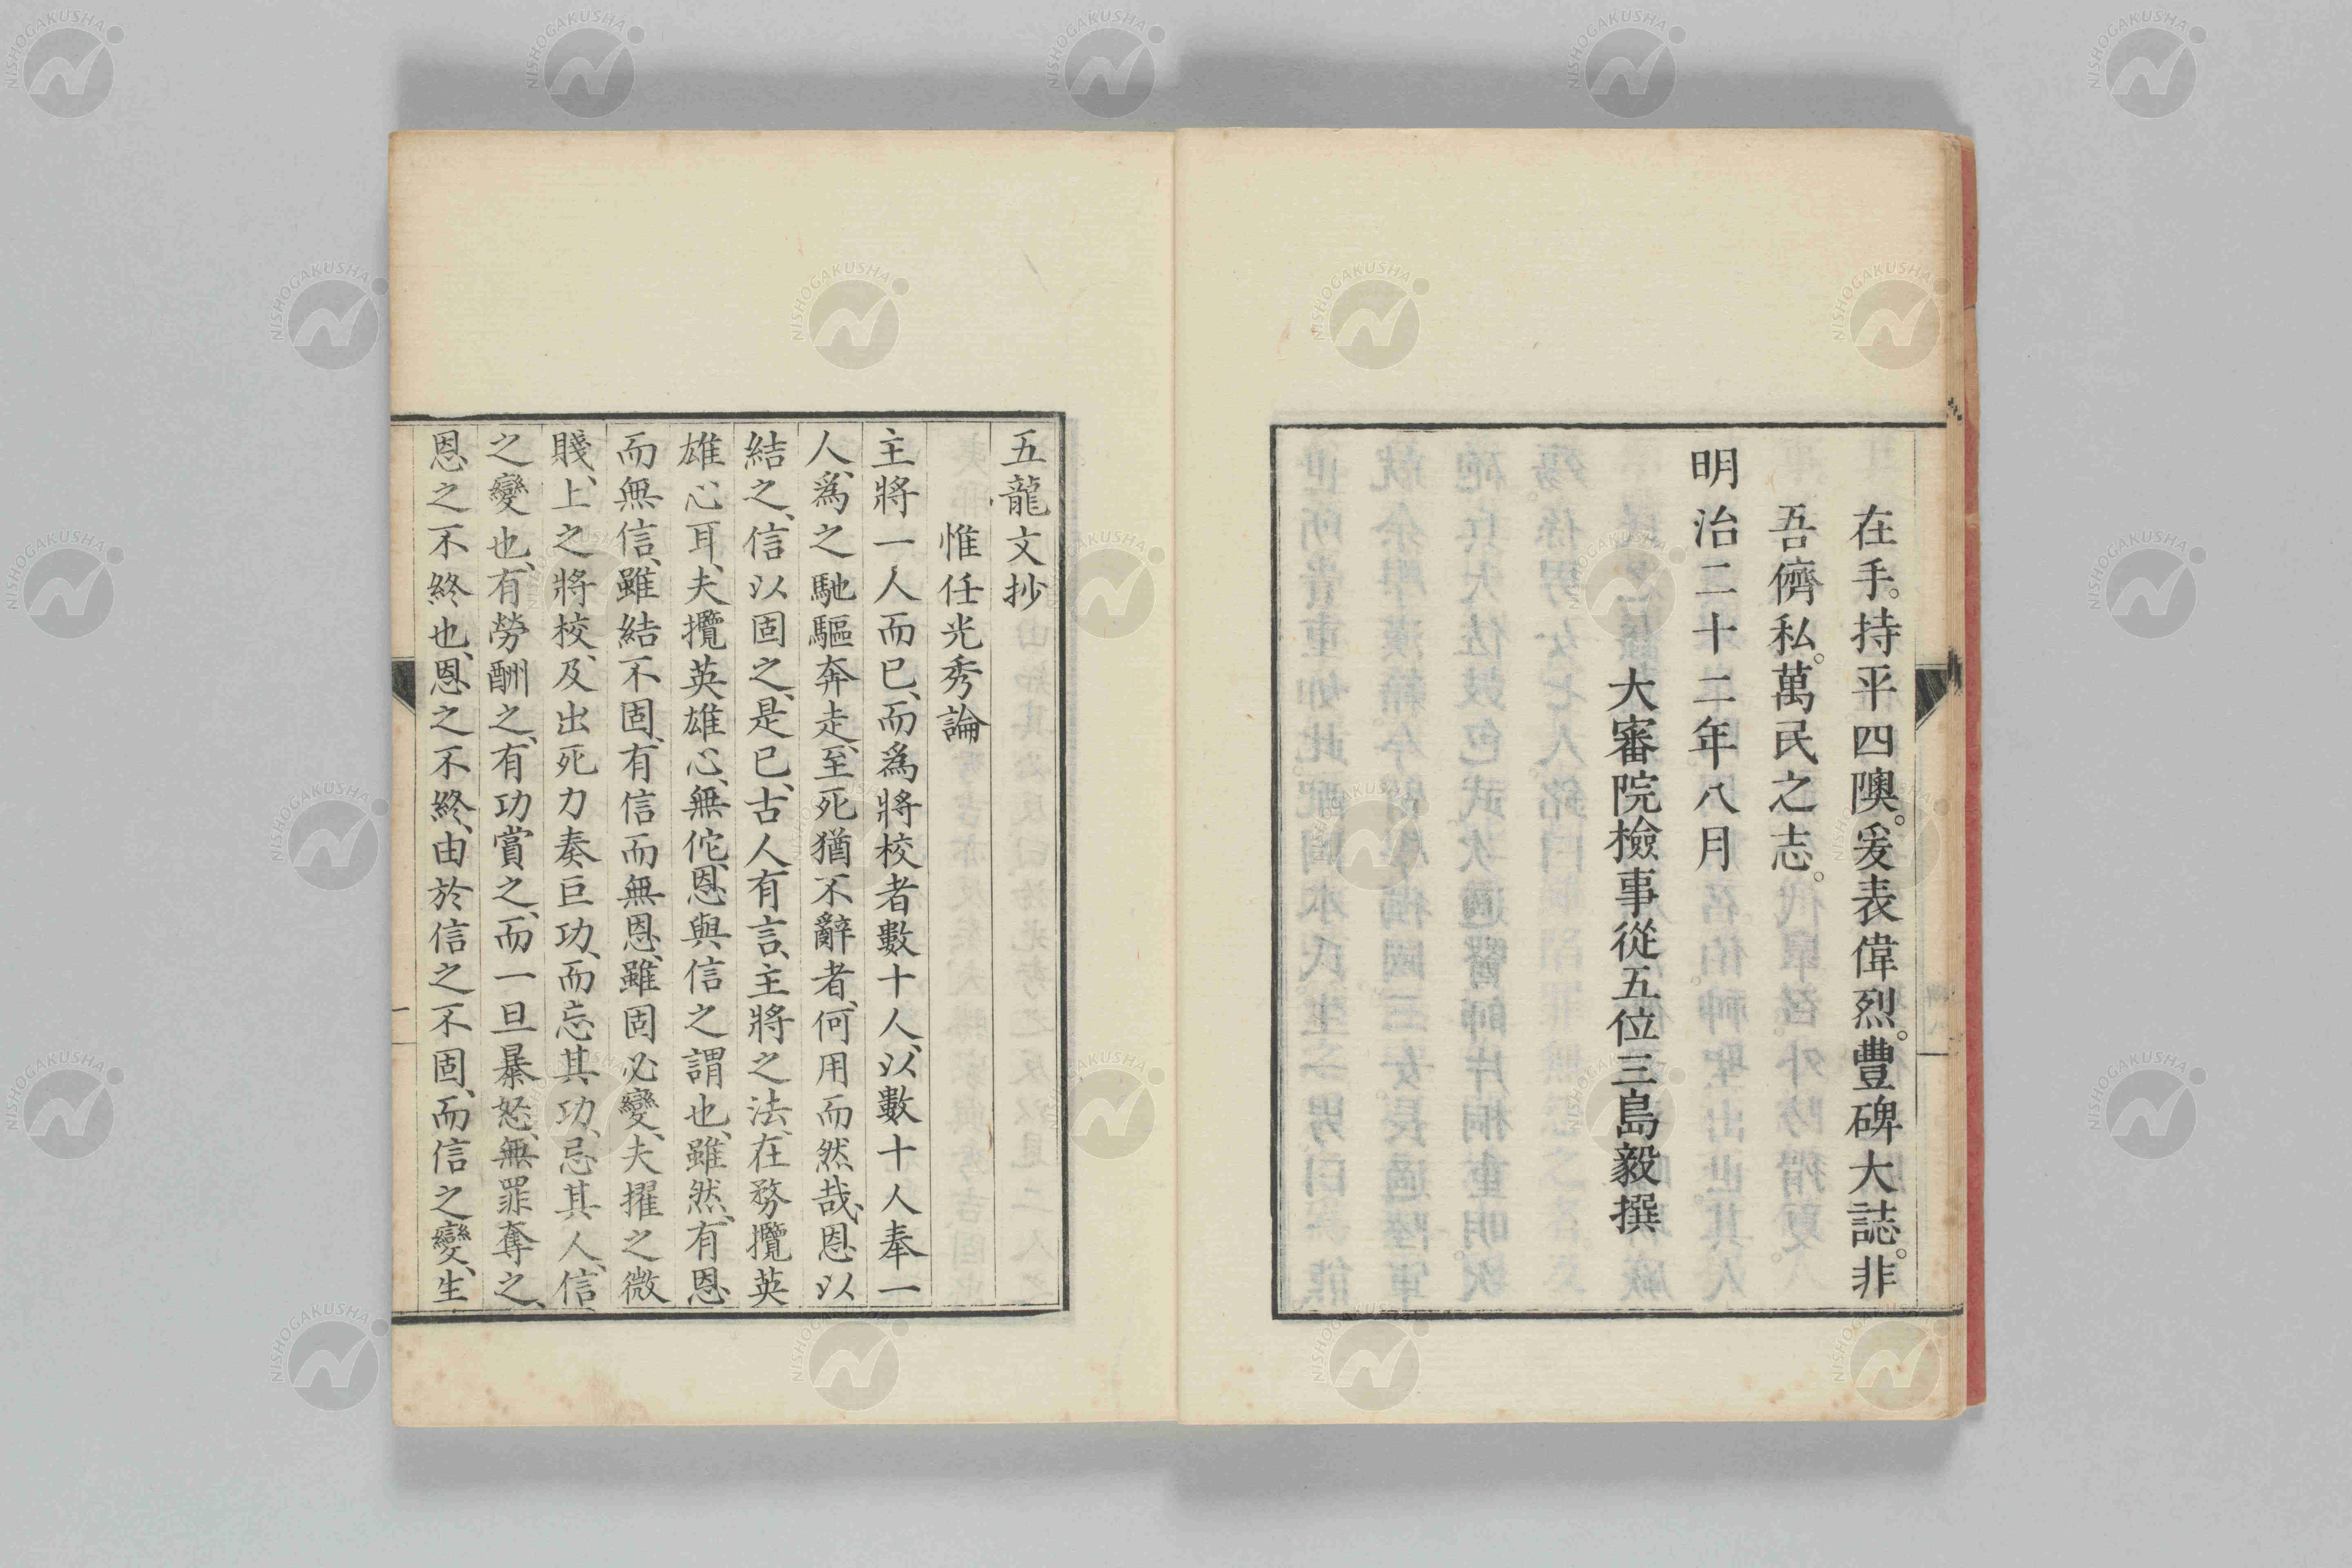 在手。持平四隩。爰表偉烈。豐碑大誌。非
吾儕私。萬民之志。
明治二十二年八月
大審院檢事從五位三島毅撰
五龍文抄
惟任光秀論
主將一人而已、而爲將校者數十人、以數十人奉一
人、爲之馳驅奔走、至死猶不辭者、何用而然哉、恩以
結之、信以固之、是已、古人有言、主將之法、在務攬英
雄心耳、夫攬英雄心、無佗、恩與信之謂也、雖然、有恩
而無信、雖結不固、有信而無恩、雖固必變、夫擢之微
賤、上之將校、及出死力奏巨功、而忘其功、忌其人、信
之變也、有勞酬之、有功賞之、而一旦暴怒、無罪奪之、
恩之不終也、恩之不終、由於信之不固、而信之變、生
一
NISHOGAKUSHA